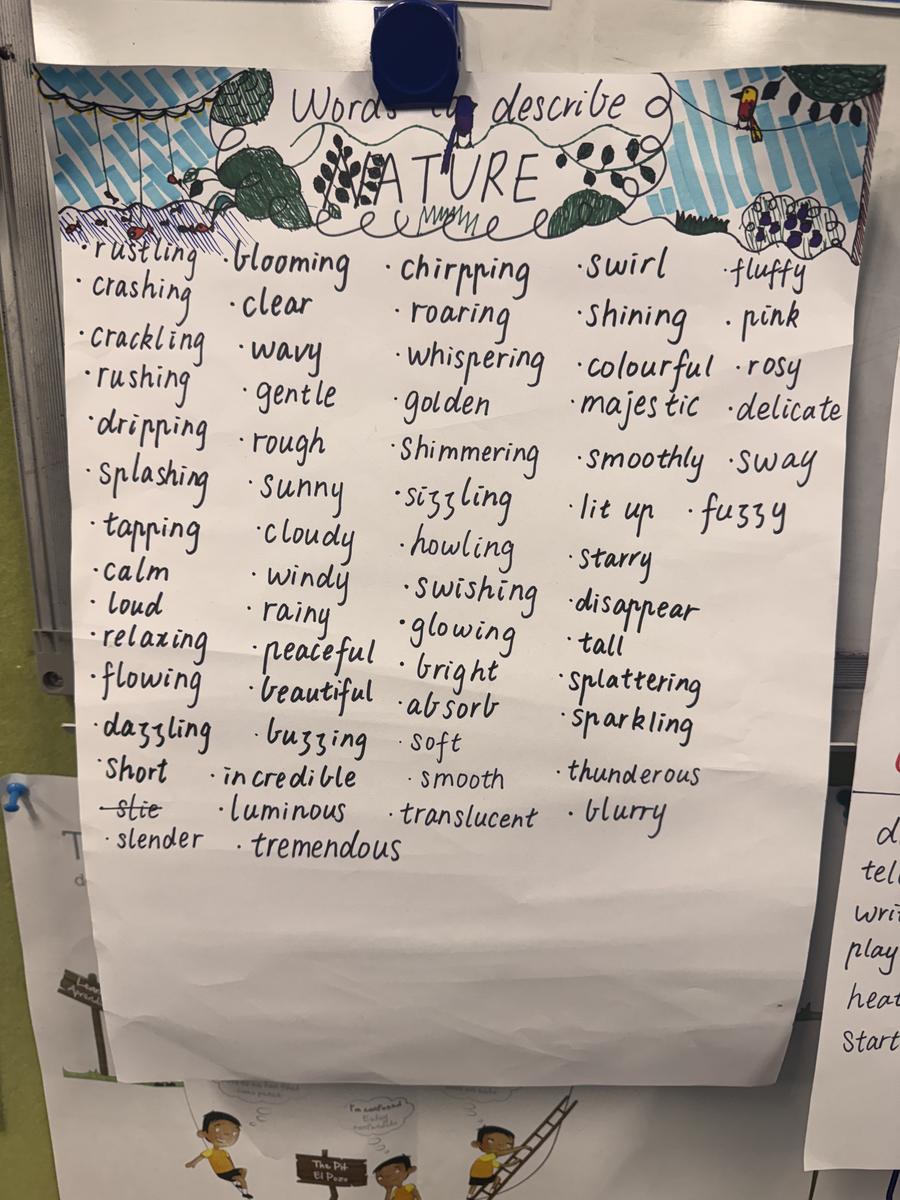 Words to describe
NATURE
· rustling
· crashing
· crackling
· rushing
· dripping
· splashing
· tapping
· calm
· loud
· relaxing
· flowing
· dazzling
· short
· slie
· slender
· blooming
· clear
· wavy
· gentle
· rough
· sunny
· cloudy
· windy
· rainy
· peaceful
· beautiful
· buzzing
· incredible
· luminous
· tremendous
· chirpping
· roaring
· whispering
· golden
· shimmering
· sizzling
· howling
· swishing
· glowing
· bright
· absorb
· soft
· smooth
· translucent
· swirl
· shining
· colourful
· majestic
· smoothly
· lit up
· starry
· disappear
· tall
· splattering
· sparkling
· thunderous
· blurry
· fluffy
· pink
· rosy
· delicate
· sway
· fuzzy
I'm confused
The Pit
El Pozo
play